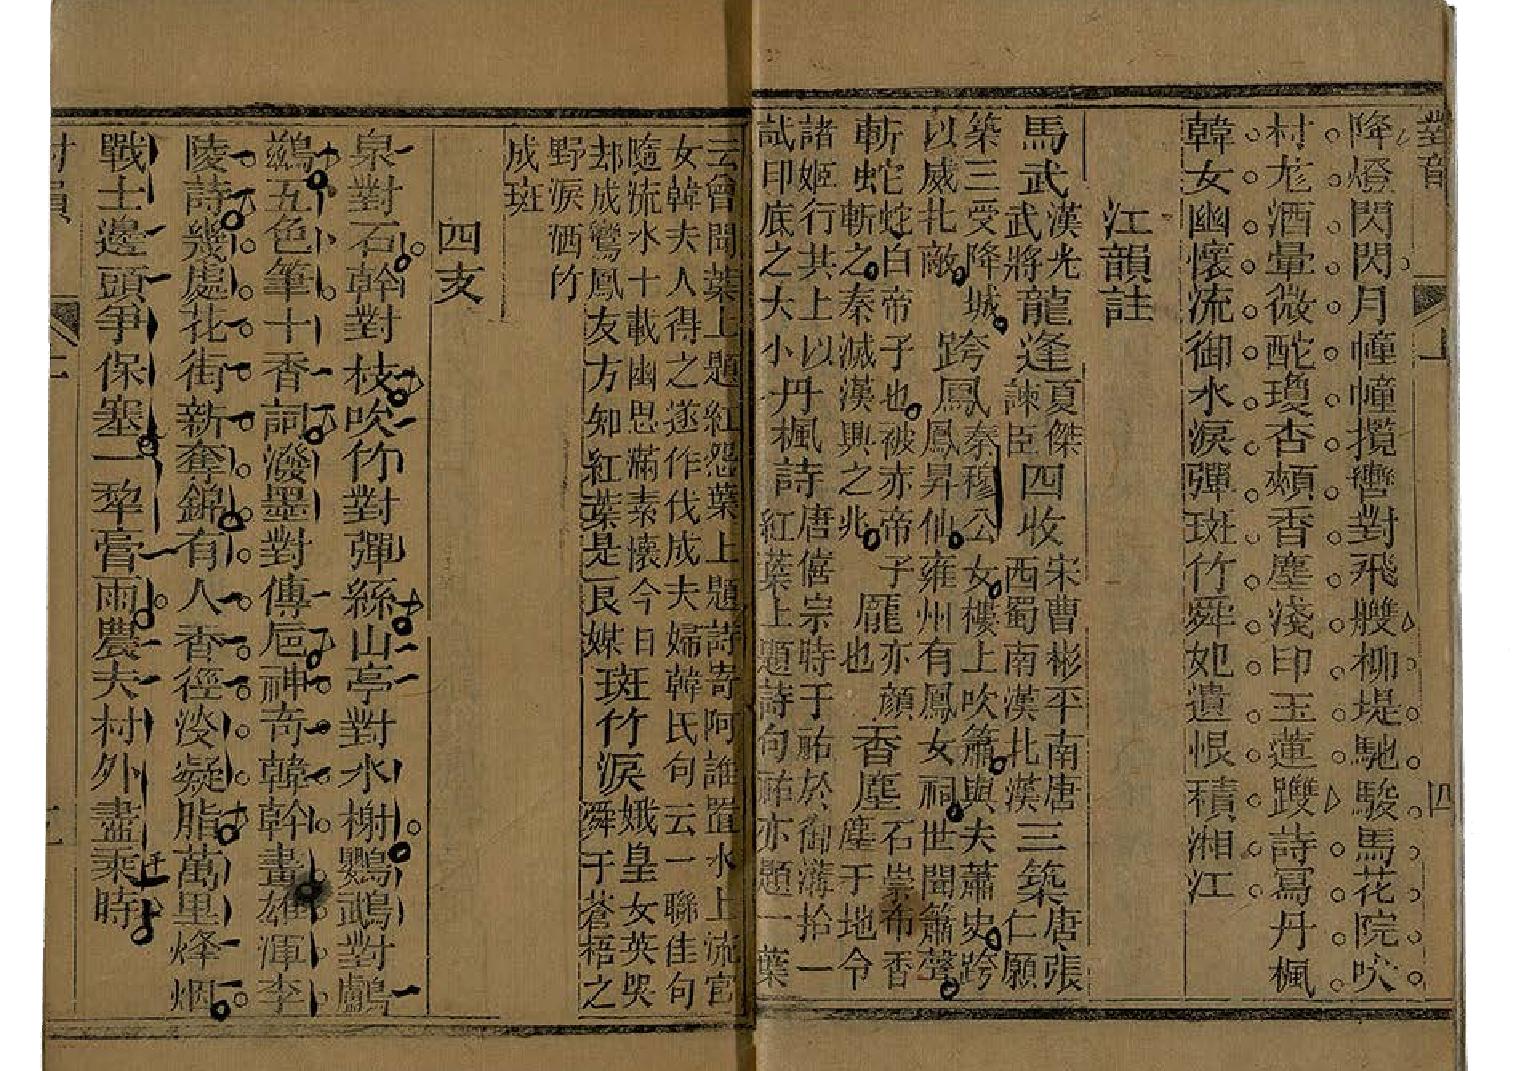 對韻　上　四
降燈閃閃月幢幢攬轡對飛艭柳堤馳駿馬花院吠
村尨酒暈微酡瓊杏頰香塵淺印玉蓮雙詩寫丹楓
韓女幽懷流御水淚彈斑竹舜妃遺恨積湘江
江韻註
馬武漢光武將龍逢夏傑諫臣四收宋曹彬平南唐西蜀南漢北漢三築唐張仁願
築三受降城以威北敵跨鳳秦穆公女樓上吹簫與夫蕭史跨鳳昇仙雍州有鳳女祠世聞簫聲
斬蛇蛇白帝子也被赤帝子斬之秦滅漢興之兆龎亦顏也香塵石崇布香塵于地令
諸姬行共上以試印底之大小丹楓詩唐僖宗時于祐於御溝拾一紅葉上題詩句祐亦題一葉
云曾聞葉上題紅怨葉上題詩寄阿誰置水上流宮女韓夫人得之遂作代成夫婦韓氏句云一聯佳句
隨流水十載幽思滿素懷今日却成鸞鳳友方知紅葉是良媒斑竹淚娥皇女英哭舜于蒼梧之
野淚洒竹成斑
四支
泉對石幹對枝吹竹對彈絲山亭對水榭鸚鵡對鸕
鶿五色筆十香詞潑墨對傳巵神奇韓幹畫雄渾李
陵詩幾處花街新奪錦有人香徑淡凝脂萬里烽烟
戰士邊頭爭保塞一犂膏雨農夫村外盡乘時